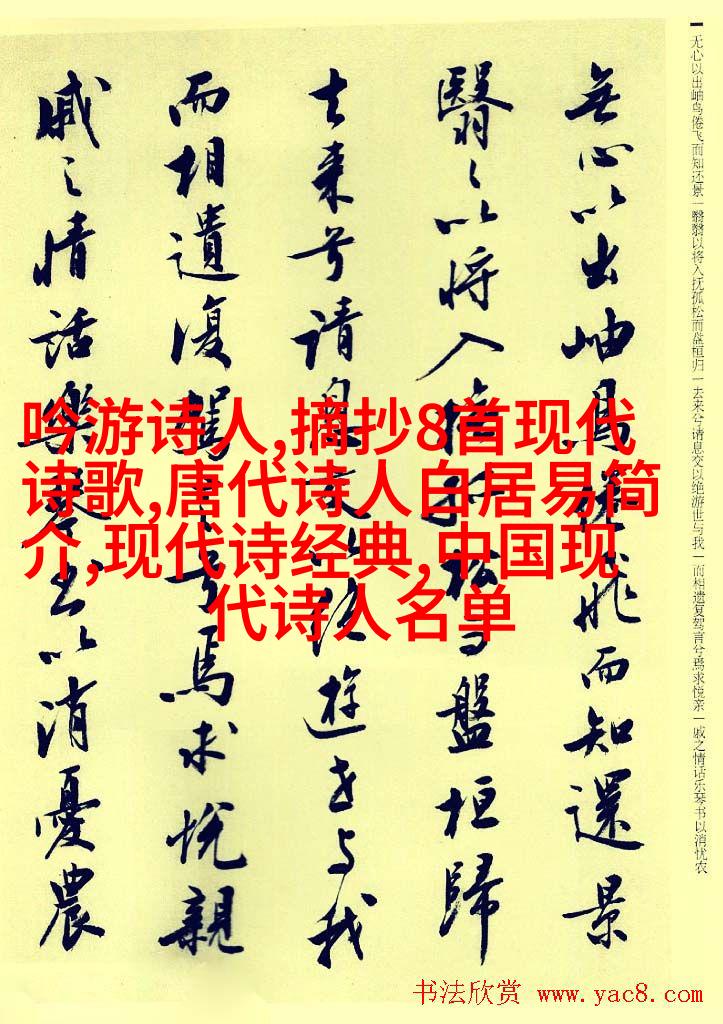 无心以出岫鸟倦飞而知还景一翳翳以将入抚孤松而盘桓归一去来兮请息交以绝游世与我一而相遗复驾言兮焉求悦亲一戚之情话乐琴书以消忧农
無心以出岫鳥倦飛而知還景
翳〻以将入撫孤松而盤桓歸
去来兮請息交以絶遊世与我
而相遺復駕言兮焉求悦親
戚之情話樂琴書以消憂農
吟游诗人,摘抄8首现代
诗歌,唐代诗人白居易简
介,现代诗经典,中国现
代诗人名单
书法欣赏 www.yac8.com